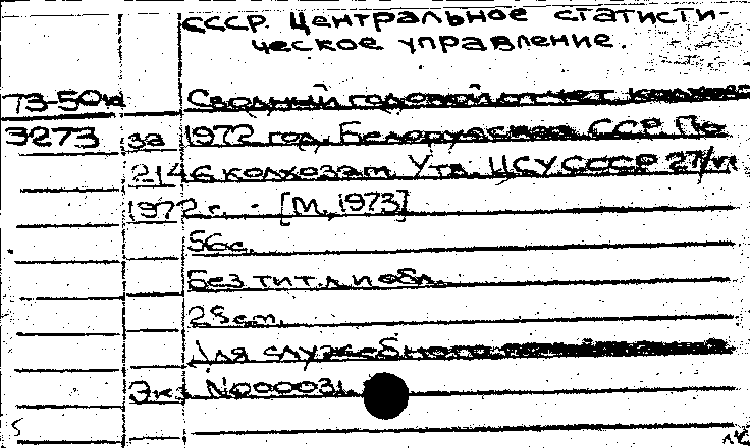 СССР. Центральное статисти-
ческое управление.
73-50м Сводный годовой отчет колхозов
3273 за 1972 год. Белорусская ССР. По
2146 колхозам. Утв. ЦСУ СССР 27/VI
1972 г. - [М, 1973]
56 с.
Без тит. л. и обл.
28 см.
Для служебного
Экз. №000031.